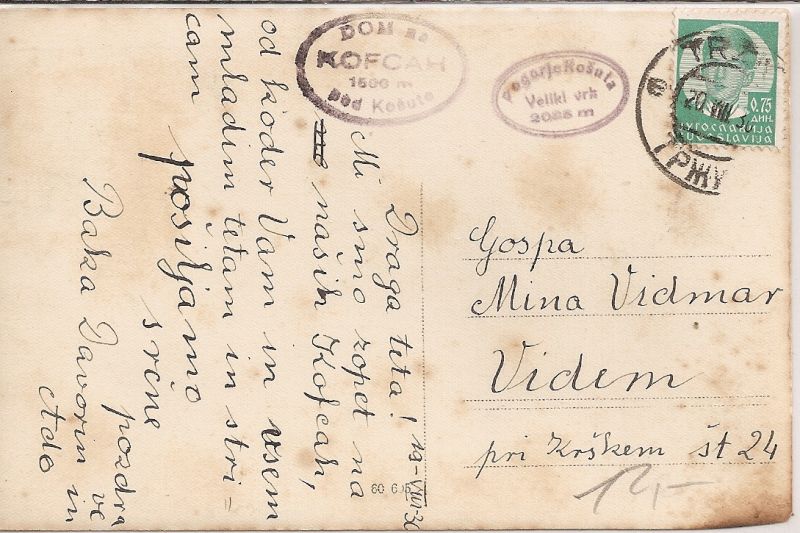 DOM na
KOFCAH
1500 m
pod Košuto
Pogorje Košuta
Veliki vrh
2088 m
TRŽ
20 VIII 36
ТРЖ
0.75
ДИН.
ЈУГОСЛАВИЈА
JUGOSLAVIJA
19-VIII-36
Draga teta!
Mi smo zopet na
naših Kofcah,
od koder Vam in vsem
mladim tetam in stri-
cam pošiljamo
srčne
pozdra
ve
Batka Davorin in
Ado
60 6
Gospa
Mina Vidmar
Videm
pri Krškem št 24
12,-